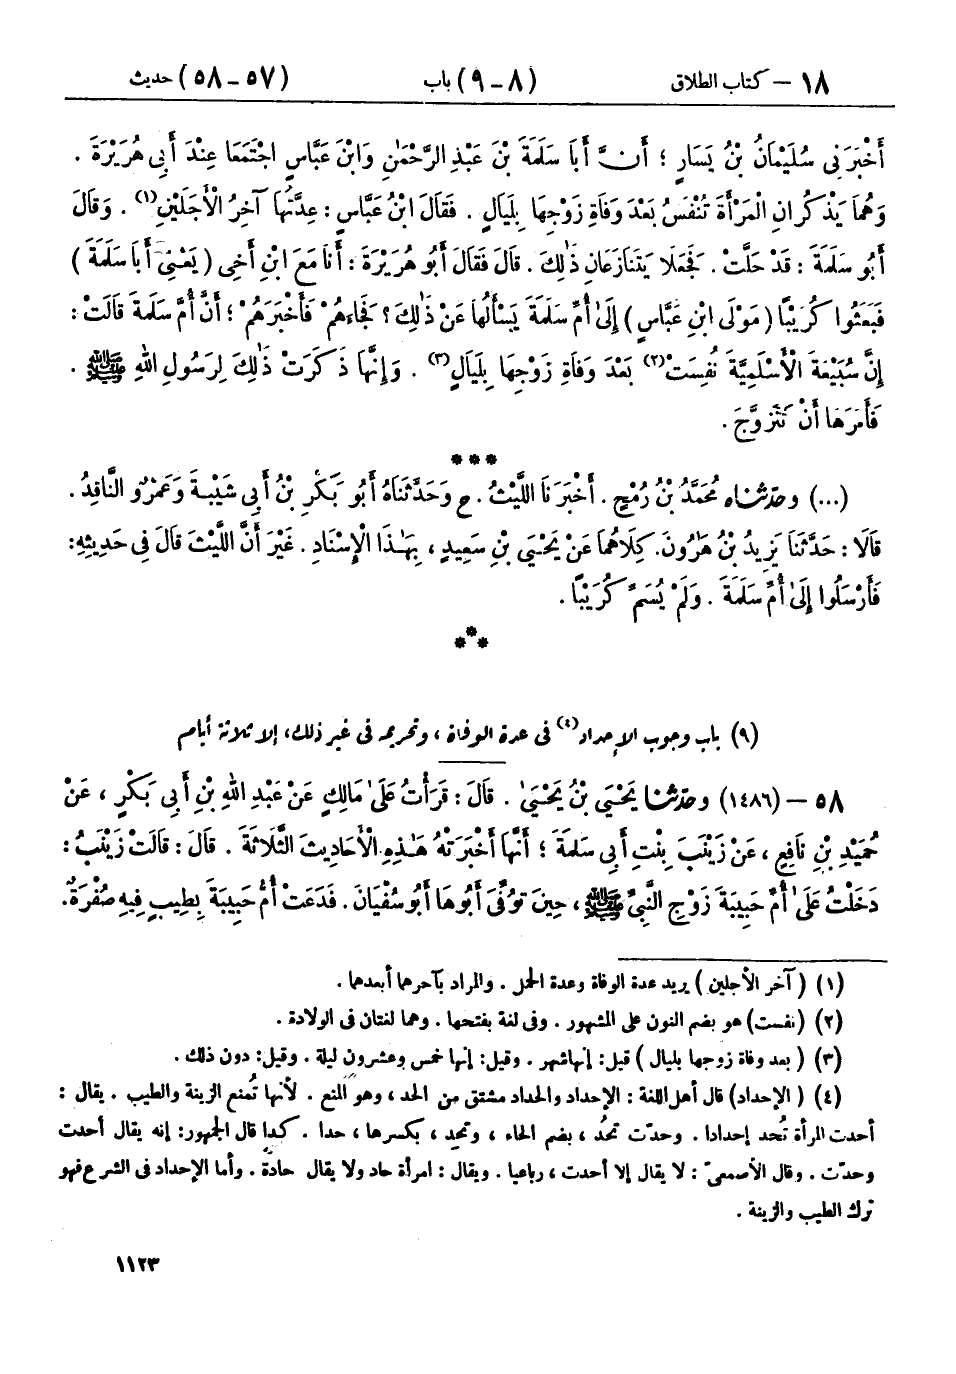 ١٨ – كتاب الطلاق (٨ – ٩) باب (٥٧ – ٥٨) حديث
أَخْبَرَنِي سُلَيْمَانُ بْنُ يَسَارٍ ؛ أَنَّ أَبَا سَلَمَةَ بْنَ عَبْدِ الرَّحْمَٰنِ وَابْنَ عَبَّاسٍ اجْتَمَعَا عِنْدَ أَبِي هُرَيْرَةَ .
وَهُمَا يَذْكُرَانِ الْمَرْأَةَ تُنْفَسُ بَعْدَ وَفَاةِ زَوْجِهَا بِلَيَالٍ . فَقَالَ ابْنُ عَبَّاسٍ : عِدَّتُهَا آخِرُ الْأَجَلَيْنِ(١) . وَقَالَ
أَبُو سَلَمَةَ : قَدْ حَلَّتْ . فَجَعَلَا يَتَنَازَعَانِ ذَٰلِكَ . قَالَ فَقَالَ أَبُو هُرَيْرَةَ : أَنَا مَعَ ابْنِ أَخِي ( يَعْنِي أَبَا سَلَمَةَ )
فَبَعَثُوا كُرَيْبًا ( مَوْلَى ابْنِ عَبَّاسٍ ) إِلَىٰ أُمِّ سَلَمَةَ يَسْأَلُهَا عَنْ ذَٰلِكَ ؟ فَجَاءَهُمْ فَأَخْبَرَهُمْ ؛ أَنَّ أُمَّ سَلَمَةَ قَالَتْ :
إِنَّ سُبَيْعَةَ الْأَسْلَمِيَّةَ نُفِسَتْ(٢) بَعْدَ وَفَاةِ زَوْجِهَا بِلَيَالٍ(٣) . وَإِنَّهَا ذَكَرَتْ ذَٰلِكَ لِرَسُولِ اللهِ ﷺ .
فَأَمَرَهَا أَنْ تَتَزَوَّجَ .
***
(...) وحَدَّثَنَاه مُحَمَّدُ بْنُ رُمْحٍ . أَخْبَرَنَا اللَّيْثُ . ح وَحَدَّثَنَاهُ أَبُو بَكْرِ بْنُ أَبِي شَيْبَةَ وَعَمْرٌو النَّاقِدُ .
قَالَا : حَدَّثَنَا يَزِيدُ بْنُ هَارُونَ . كِلَاهُمَا عَنْ يَحْيَىٰ بْنِ سَعِيدٍ ، بِهَٰذَا الْإِسْنَادِ . غَيْرَ أَنَّ اللَّيْثَ قَالَ فِي حَدِيثِهِ :
فَأَرْسَلُوا إِلَىٰ أُمِّ سَلَمَةَ . وَلَمْ يُسَمِّ كُرَيْبًا .
***
(٩) باب وجوب الإحداد(٤) فى عدة الوفاة ، وتحريمه فى غير ذلك ، إلا ثلاثة أيام
٥٨ – (١٤٨٦) وحَدَّثَنَا يَحْيَىٰ بْنُ يَحْيَىٰ . قَالَ : قَرَأْتُ عَلَىٰ مَالِكٍ عَنْ عَبْدِ اللهِ بْنِ أَبِي بَكْرٍ ، عَنْ
حُمَيْدِ بْنِ نَافِعٍ ، عَنْ زَيْنَبَ بِنْتِ أَبِي سَلَمَةَ ؛ أَنَّهَا أَخْبَرَتْهُ هَٰذِهِ الْأَحَادِيثَ الثَّلَاثَةَ . قَالَ : قَالَتْ زَيْنَبُ :
دَخَلْتُ عَلَىٰ أُمِّ حَبِيبَةَ زَوْجِ النَّبِيِّ ﷺ ، حِينَ تُوُفِّيَ أَبُوهَا أَبُو سُفْيَانَ . فَدَعَتْ أُمُّ حَبِيبَةَ بِطِيبٍ فِيهِ صُفْرَةٌ.
(١) ( آخر الأجلين ) يريد عدة الوفاة وعدة الحمل . والمراد بآخرها أبعدهما .
(٢) ( نفست) هو بضم النون على المشهور . وفى لغة بفتحها . وهما لغتان فى الولادة .
(٣) ( بعد وفاة زوجها بليال ) قيل : إنها شهر . وقيل : إنها خمس وعشرون ليلة . وقيل : دون ذلك .
(٤) ( الإحداد) قال أهل اللغة : الإحداد والحداد مشتق من الحد ، وهو المنع . لأنها تُمنع الزينة والطيب . يقال :
أحدت المرأة تُحد إحدادا . وحدّت تحُدّ ، بضم الحاء ، وتحِد ، بكسرها ، حدا . كذا قال الجمهور: إنه يقال أحدت
وحدّت . وقال الأصمعىّ : لا يقال إلا أحدت ، رباعيا . ويقال : امرأة حاد ولا يقال حادّة . وأما الإحداد فى الشرع فهو
ترك الطيب والزينة .
١١٢٣